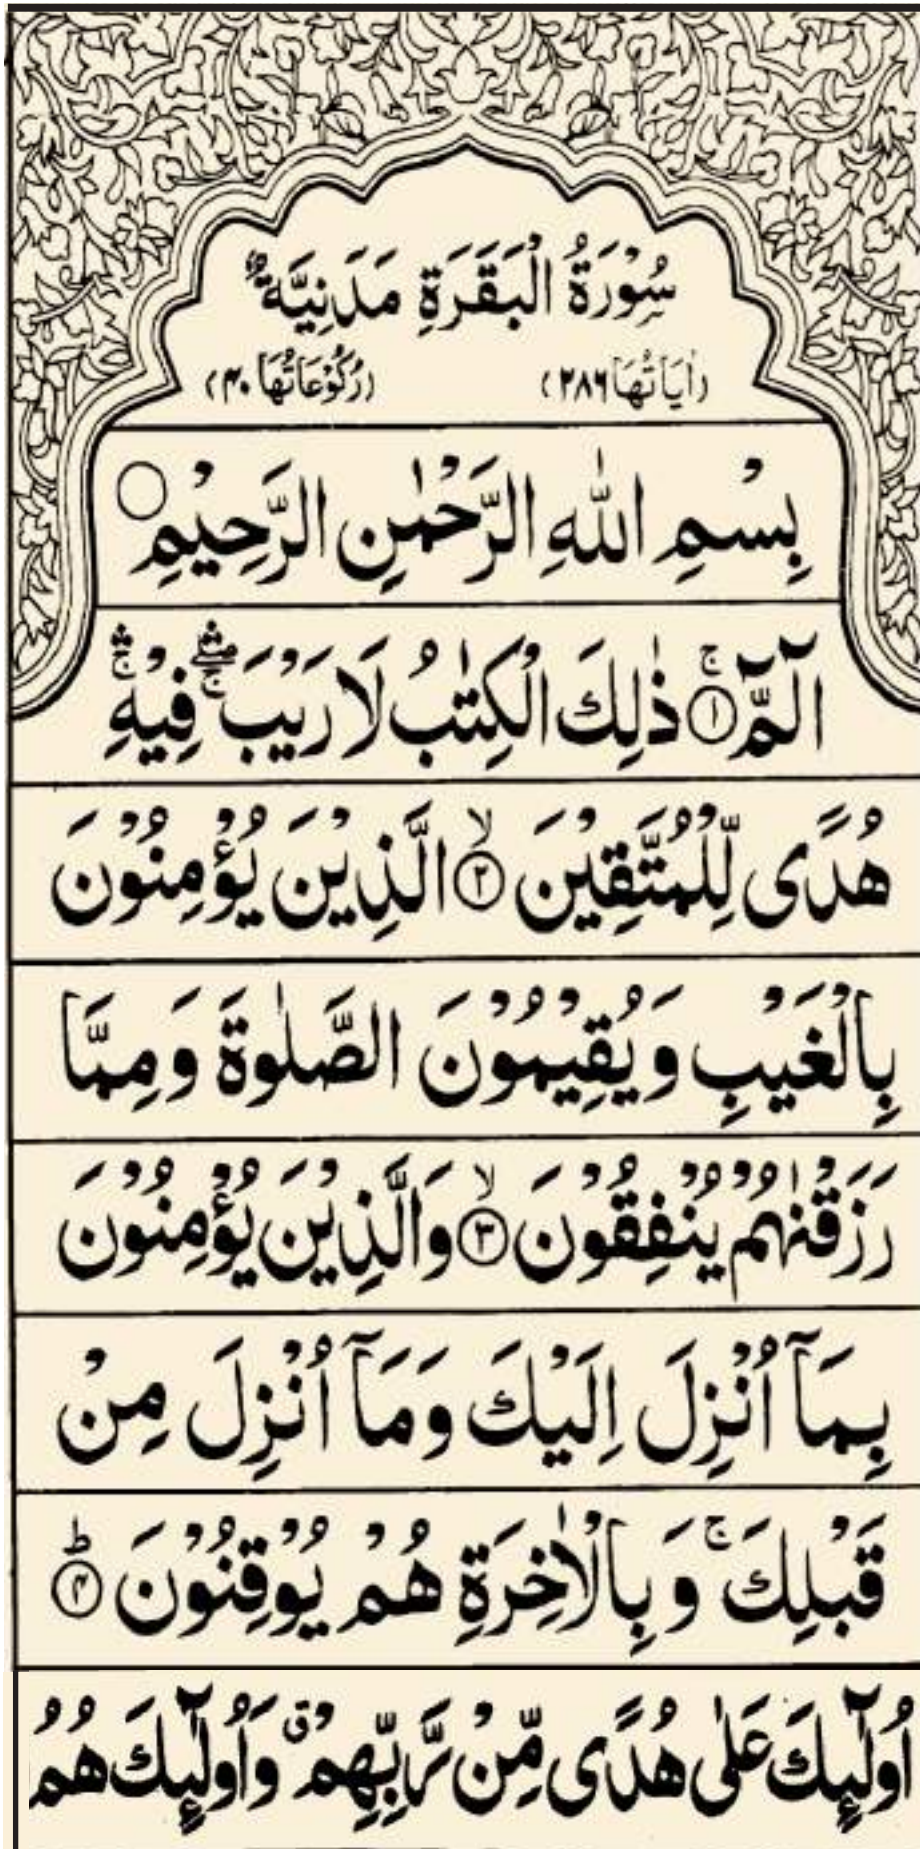 سُوْرَةُ الْبَقَرَةِ مَدَنِيَّةٌ
(اٰيَاتُهَا ٢٨٦) (رُكُوْعَاتُهَا ٤٠)
بِسْمِ اللّٰهِ الرَّحْمٰنِ الرَّحِيْمِ ○
الٓمّٓ ۚ﴿١﴾ ذٰلِكَ الْكِتٰبُ لَا رَيْبَ ۛۖۚ فِيْهِ ۛۚ
هُدًى لِّلْمُتَّقِيْنَ ۙ﴿٢﴾ الَّذِيْنَ يُؤْمِنُوْنَ
بِالْغَيْبِ وَيُقِيْمُوْنَ الصَّلٰوةَ وَمِمَّا
رَزَقْنٰهُمْ يُنْفِقُوْنَ ۙ﴿٣﴾ وَالَّذِيْنَ يُؤْمِنُوْنَ
بِمَآ اُنْزِلَ اِلَيْكَ وَمَآ اُنْزِلَ مِنْ
قَبْلِكَ ۚ وَبِالْاٰخِرَةِ هُمْ يُوْقِنُوْنَ ؕ﴿٤﴾
اُولٰٓئِكَ عَلٰى هُدًى مِّنْ رَّبِّهِمْ ۗ وَاُولٰٓئِكَ هُمُ